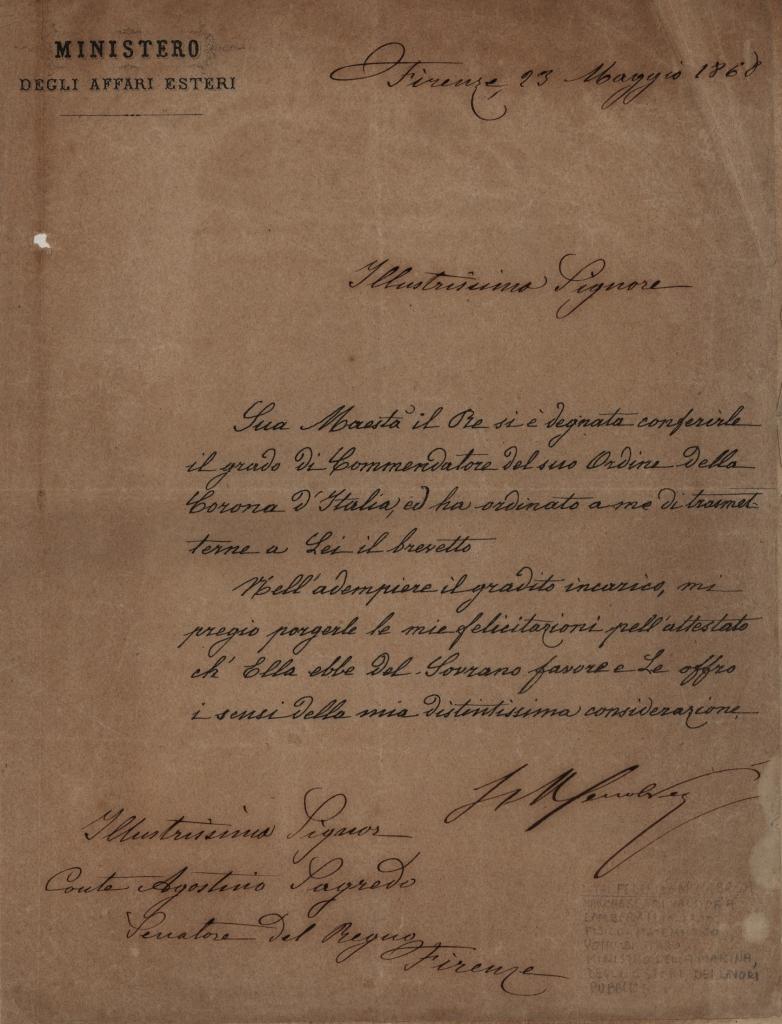 MINISTERO
DEGLI AFFARI ESTERI
Firenze, 23 Maggio 1868
Illustrissimo Signore
Sua Maestà il Re si è degnata conferirle
il grado di Commendatore del suo Ordine della
Corona d'Italia, ed ha ordinato a me di trasmet-
terne a Lei il brevetto
Nell'adempiere il gradito incarico, mi
pregio porgerle le mie felicitazioni pell'attestato
ch' Ella ebbe del Sovrano favore e Le offro
i sensi della mia distintissima considerazione.
Illustrissimo Signor
Conte Agostino Sagredo
Senatore del Regno
Firenze
MINISTRO DELLA MARINA,
DEI LAVORI
PUBBLICI